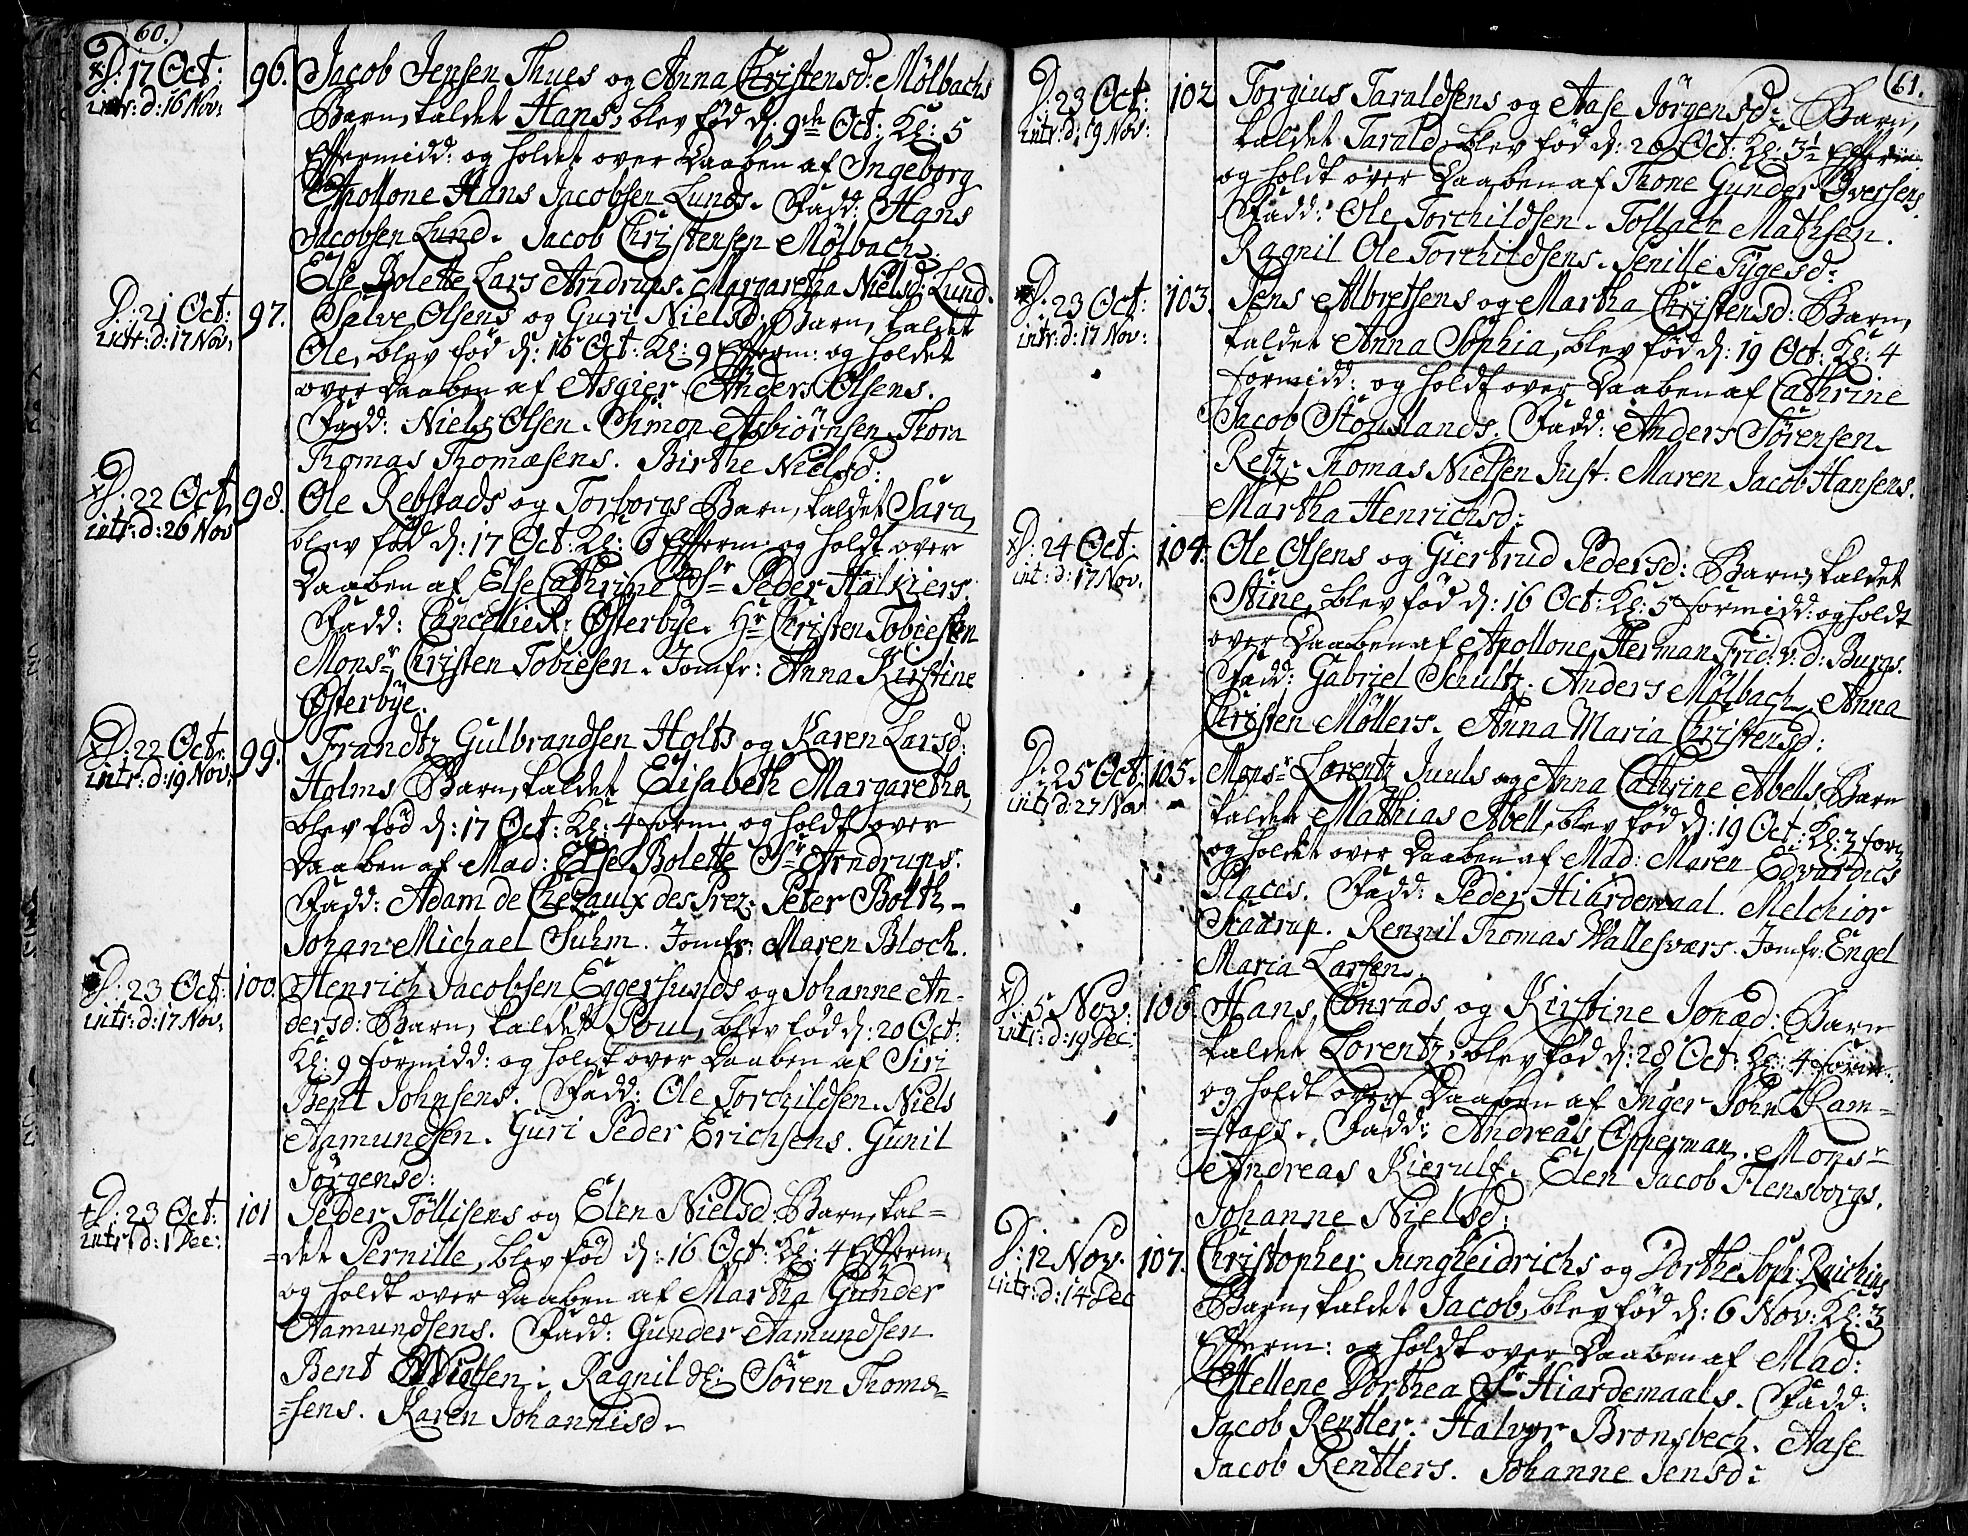 60.
D: 17 Oct: 96. Jacob Jensen Thues og Anna Christensd: Mølbachs
intr: d: 16 Nov: Barn, kaldet Hans, blev fød d: 9de Oct: Kl: 5
Efftermidd: og holdet over Daaben af Ingeborg
Apollone Hans Jacobsen Lunds. Fadd: Hans
Jacobsen Lund. Jacob Christensen Mølbach.
Else Bolette Lars Arndrups. Margaretha Nielsd: Lund.
D: 21 Oct: 97. Salve Olsens og Guri Nielsd: Barn, kaldet
intr: d: 17 Nov: Ole, blev fød d: 16 Oct: Kl: 9 Efferm: og holdet
over Daaben af Asgier Anders Olsens.
Fadd: Niels Olsen. Simon Asbiørnsen. Thora
Thomas Thomæsens. Birthe Nielsd:
D: 22 Oct. 98. Ole Rebstads og Torborgs Barn, kaldet Sara,
intr: d: 26 Nov blev fød d: 17 Oct: Kl: 6 Efferm: og holdt over
Daaben af Else Cathrine Sr Peder Halkiers.
Fadd: CancellieR: Østerbye. Hr Christen Tobiesen
Monsr Christen Tobiesen. Jomfr: Anna Kirstine
Østerbye.
D: 22 Oct: 99. Frandtz Gulbrandsen Holts og Karen Larsd:
intr: d: 19 Nov: Holms Barn, kaldet Elisabeth Margaretha,
blev fød d: 17 Oct: Kl: 4 form: og holdt over
Daaben af Mad: Else Bolette Sr Arndrups.
Fadd: Adam de Chezaulx des Prez. Peter Bolth.
Johan Michael Suhm. Jomfr: Maren Bloch.
D: 23 Oct: 100. Henrich Jacobsen Eggersunds og Johanne An-
intr: d: 17 Nov: dersd: Barn, kaldet Poul, blev fød d: 20 Oct:
Kl: 9 formidd: og holdt over Daaben af Siri
Bent Johnsens. Fadd: Ole Torchildsen. Niels
Aamundsen. Guri Peder Erichsens. Gunil
Jørgensd:
D: 23 Oct: 101 Peder Tøllisens og Elen Nielsd: Barn, kal=
intr: d: 1 Dec: =det Pernille, blev fød d: 16 Oct: Kl: 4 Efferm.
og holdt over Daaben af Martha Gunder
Aamundsens. Fadd: Gunder Aamundsen
Bent Nielsen. Ragnil Søren Thoma=
=sens. Karen Johannisd.
61.
D: 23 Oct: 102 Torgius Taraldsens og Aase Jörgensd: Barn,
intr: d: 19 Nov: kaldet Tarald, blev fød d: 20 Oct: Kl: 3½ Efferm
og holdt over Daaben af Thone Gunder Iversens.
Fadd: Ole Torchildsen. Tollach Mathsen.
Ragnil Ole Torchildsens. Penille Tygesd:
D: 23 Oct: 103. Jens Albretsens og Martha Christensd: Barn,
intr: d: 17 Nov: kaldet Anna Sophia, blev fød d: 19 Oct: Kl: 4
formidd: og holdt over Daaben af Cathrine
Jacob Stousslands. Fadd: Anders Sørensen
Retz. Thomas Nielsen Just. Maren Jacob Hansens.
Martha Henrichsd:
D: 24 Oct. 104. Ole Olsens og Giertrud Pedersd: Barn, kaldet
int: d: 17 Nov. Stine, blev fød d: 16 Oct: Kl: 5 formidd: og holdt
over Daaben af Apollone Herman Frid: v: d: Burgs.
Fadd: Gabriel Schultz. Anders Mølbach. Anna
Christen Møllers. Anna Maria Christensd:
D: 25 Oct: 105. Monsr Lorentz Juuls og Anna Cathrine Abells Barn
intr: d: 27 Nov kaldet Mathias Abell, blev fød d: 19 Oct: Kl: 3 form
og holdet over Daaben af Mad: Maren Edvardics
Places. Fadd: Peder Hiardemaal. Melchior
Staarup. Rennil Thomas Wallesværs. Jomfr: Engel
Maria Larsen.
D: 5 Nov: 106. Hans Conrads og Kirstine Jonæd: Barn
intr: d: 19 Dec: kaldet Lorentz, blev fød d: 28 Oct: Kl: 4 form.
og holdt over Daaben af Inger John Ram=
=stads. Fadd: Andreas Opperman. Monsr
Andreas Kierulf. Elen Jacob Flensborgs.
Johanne Nielsd:
D: 12 Nov. 107. Christopher Jungheidrichs og Dorthe Soph: Raichius
intr: d: 14 Dec Barn, kaldet Jacob, blev fød d: 6 Nov: Kl: 3
Efferm: og holdt over Daaben af Mad:
Hellene Dorthea Sr Hiardemaals. Fadd:
Jacob Rentler. Halvor Bronsbech. Aase
Jacob Rentlers. Johanne Jensd: